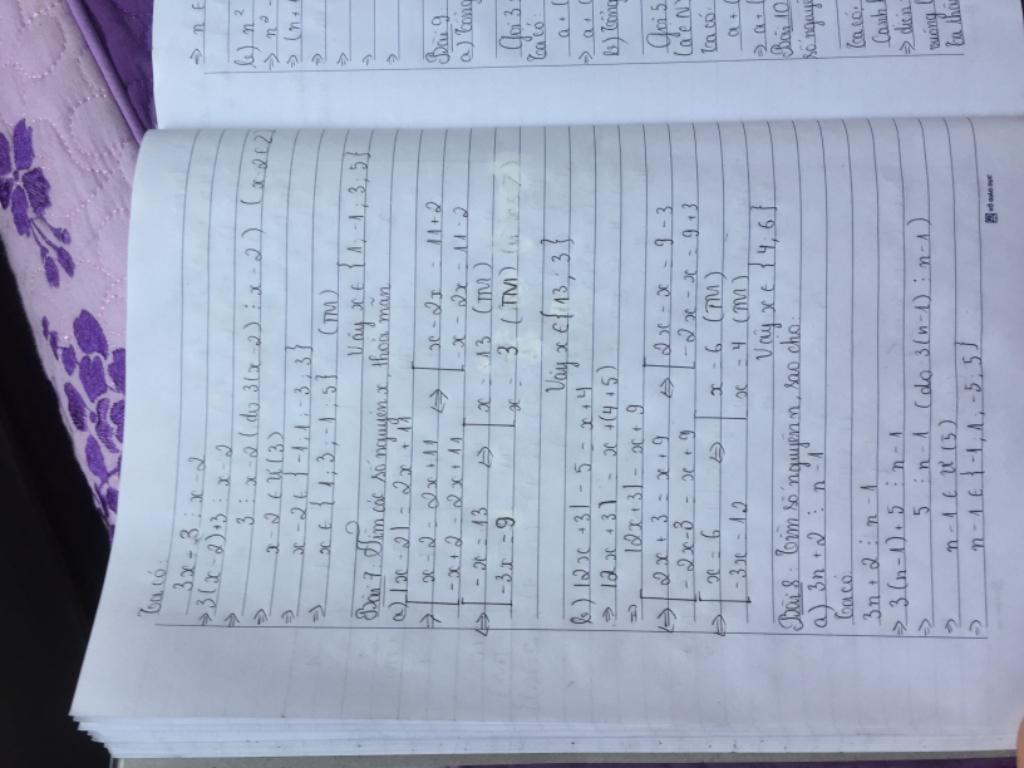 Ta có:
3x - 3 ⋮ x - 2
⇒ 3(x-2)+3 ⋮ x-2
⇒ 3 ⋮ x-2 (do 3(x-2) ⋮ x-2) (x-2≠2
⇒ x-2 ∈ Ư(3)
⇒ x-2 ∈ {-1; 1; -3; 3}
⇒ x ∈ {1; 3; -1; 5} (TM)
Vậy x ∈ {1; -1; 3; 5}
Bài 7. Tìm các số nguyên x thỏa mãn
a) |x-2| = 2x+11
⇒ [x-2 = 2x+11 ⇔ [x-2x = 11+2
[-x+2 = 2x+11 [-x-2x = 11-2
⇔ [-x = 13 ⇔ [x = -13 (TM)
[-3x = 9 [x = -3 (TM)
Vậy x ∈ {13; 3}
b) |2x+3| - 5 = x+4
⇒ |2x+3| = x+(4+5)
⇒ |2x+3| = x+9
⇔ [2x+3 = x+9 ⇔ [2x-x = 9-3
[-2x-3 = x+9 [-2x-x = 9+3
⇔ [x = 6 ⇔ [x = 6 (TM)
[-3x = 12 [x = -4 (TM)
Vậy x ∈ {4; 6}
Bài 8. Tìm số nguyên n, sao cho:
a) 3n+2 ⋮ n-1
Ta có:
3n+2 ⋮ n-1
⇒ 3(n-1)+5 ⋮ n-1
⇒ 5 ⋮ n-1 (do 3(n-1) ⋮ n-1)
⇒ n-1 ∈ Ư(5)
⇒ n-1 ∈ {-1; 1; -5; 5}
⇒ n ∈
b) n²
n²
⇒ (n+
⇒
⇒
⇒
⇒
Bài 9
a) Tổng
Gọi 3
Ta có:
a+(
⇒ a+(
b) Tổng
Gọi 5
(a ∈ N)
Ta có:
a+(
⇒ a+(
Bài 10
số nguy
Ta có: